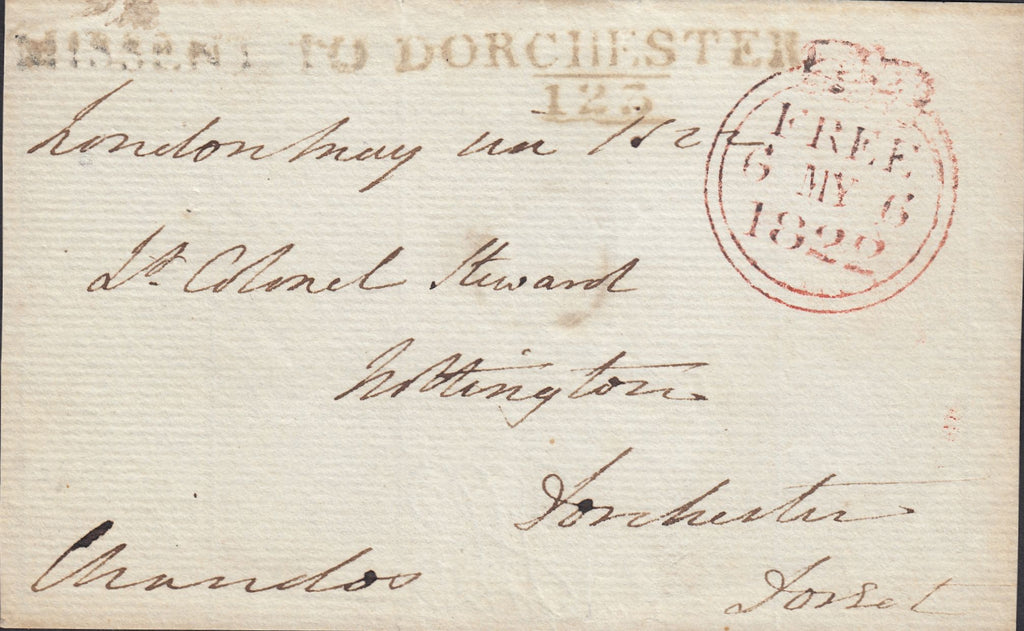 MISSENT TO DORCHESTER
123
London May six 1822
FREE
6 MY 6
1822
Lt Colonel Steward
Nottington
Dorchester
Chandos
Dorset